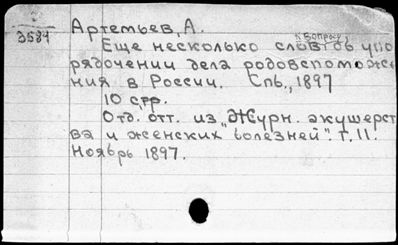 Артемьев, А.
3581
к вопросу
Еще несколько слов об упо
рядочении дела родовспоможе
ния в России. Спб., 1897
10 стр.
Отд. отт. из „Журн. акушерст
ва и женских болезней". т. 11.
Ноябрь 1897.